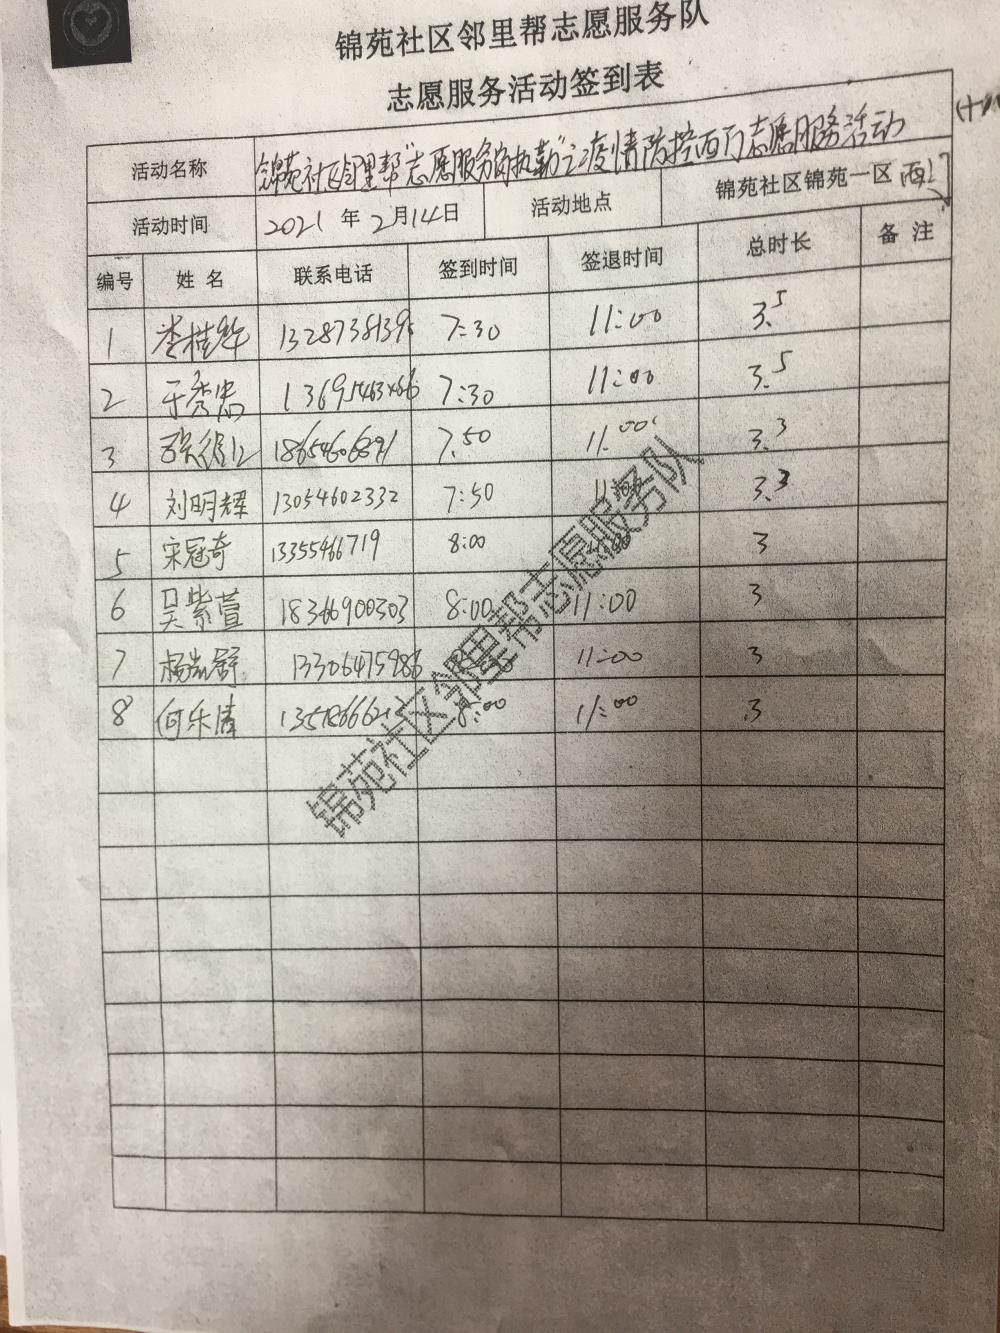 锦苑社区邻里帮志愿服务队
志愿服务活动签到表
活动名称 锦苑社区邻里帮"志愿服务岗执勤"之疫情防控西门志愿服务活动
活动时间 2021年2月14日 活动地点 锦苑社区锦苑一区西门
编号 姓名 联系电话 签到时间 签退时间 总时长 备注
1 7:30 11:00 3.5
2 于秀忠 7:30 11:00 3.5
3 18654606891 7:50 11:00 3.3
4 刘明辉 13054602332 7:50 11:00 3.3
5 宋冠奇 13355466719 8:00 3
6 吴紫萱 18366900303 8:00 11:00 3
7 13306475986 11:00 3
8 何乐清 8:00 11:00 3
锦苑社区邻里帮志愿服务队